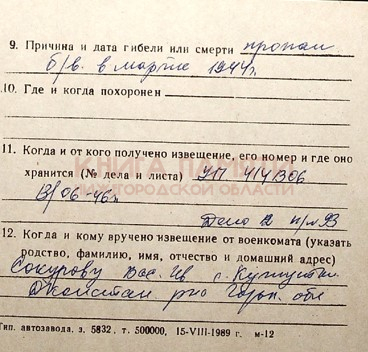 9. Причина и дата гибели или смерти пропал
б/в. в марте 1944г.
10. Где и когда похоронен
11. Когда и от кого получено извещение, его номер и где оно
хранится (№ дела и листа) УП 414306
13/06-46г.
Дело 2 п/л 93
КНИГА ПАМЯТИ
НИЖЕГОРОДСКОЙ ОБЛАСТИ
12. Когда и кому вручено извещение от военкомата (указать
родство, фамилию, имя, отчество и домашний адрес)
Сокурову Вас. Ив
рно Горьк. обл
Тип. автозавода. з. 5832, т. 500000, 15-VIII-1989 г. м-12